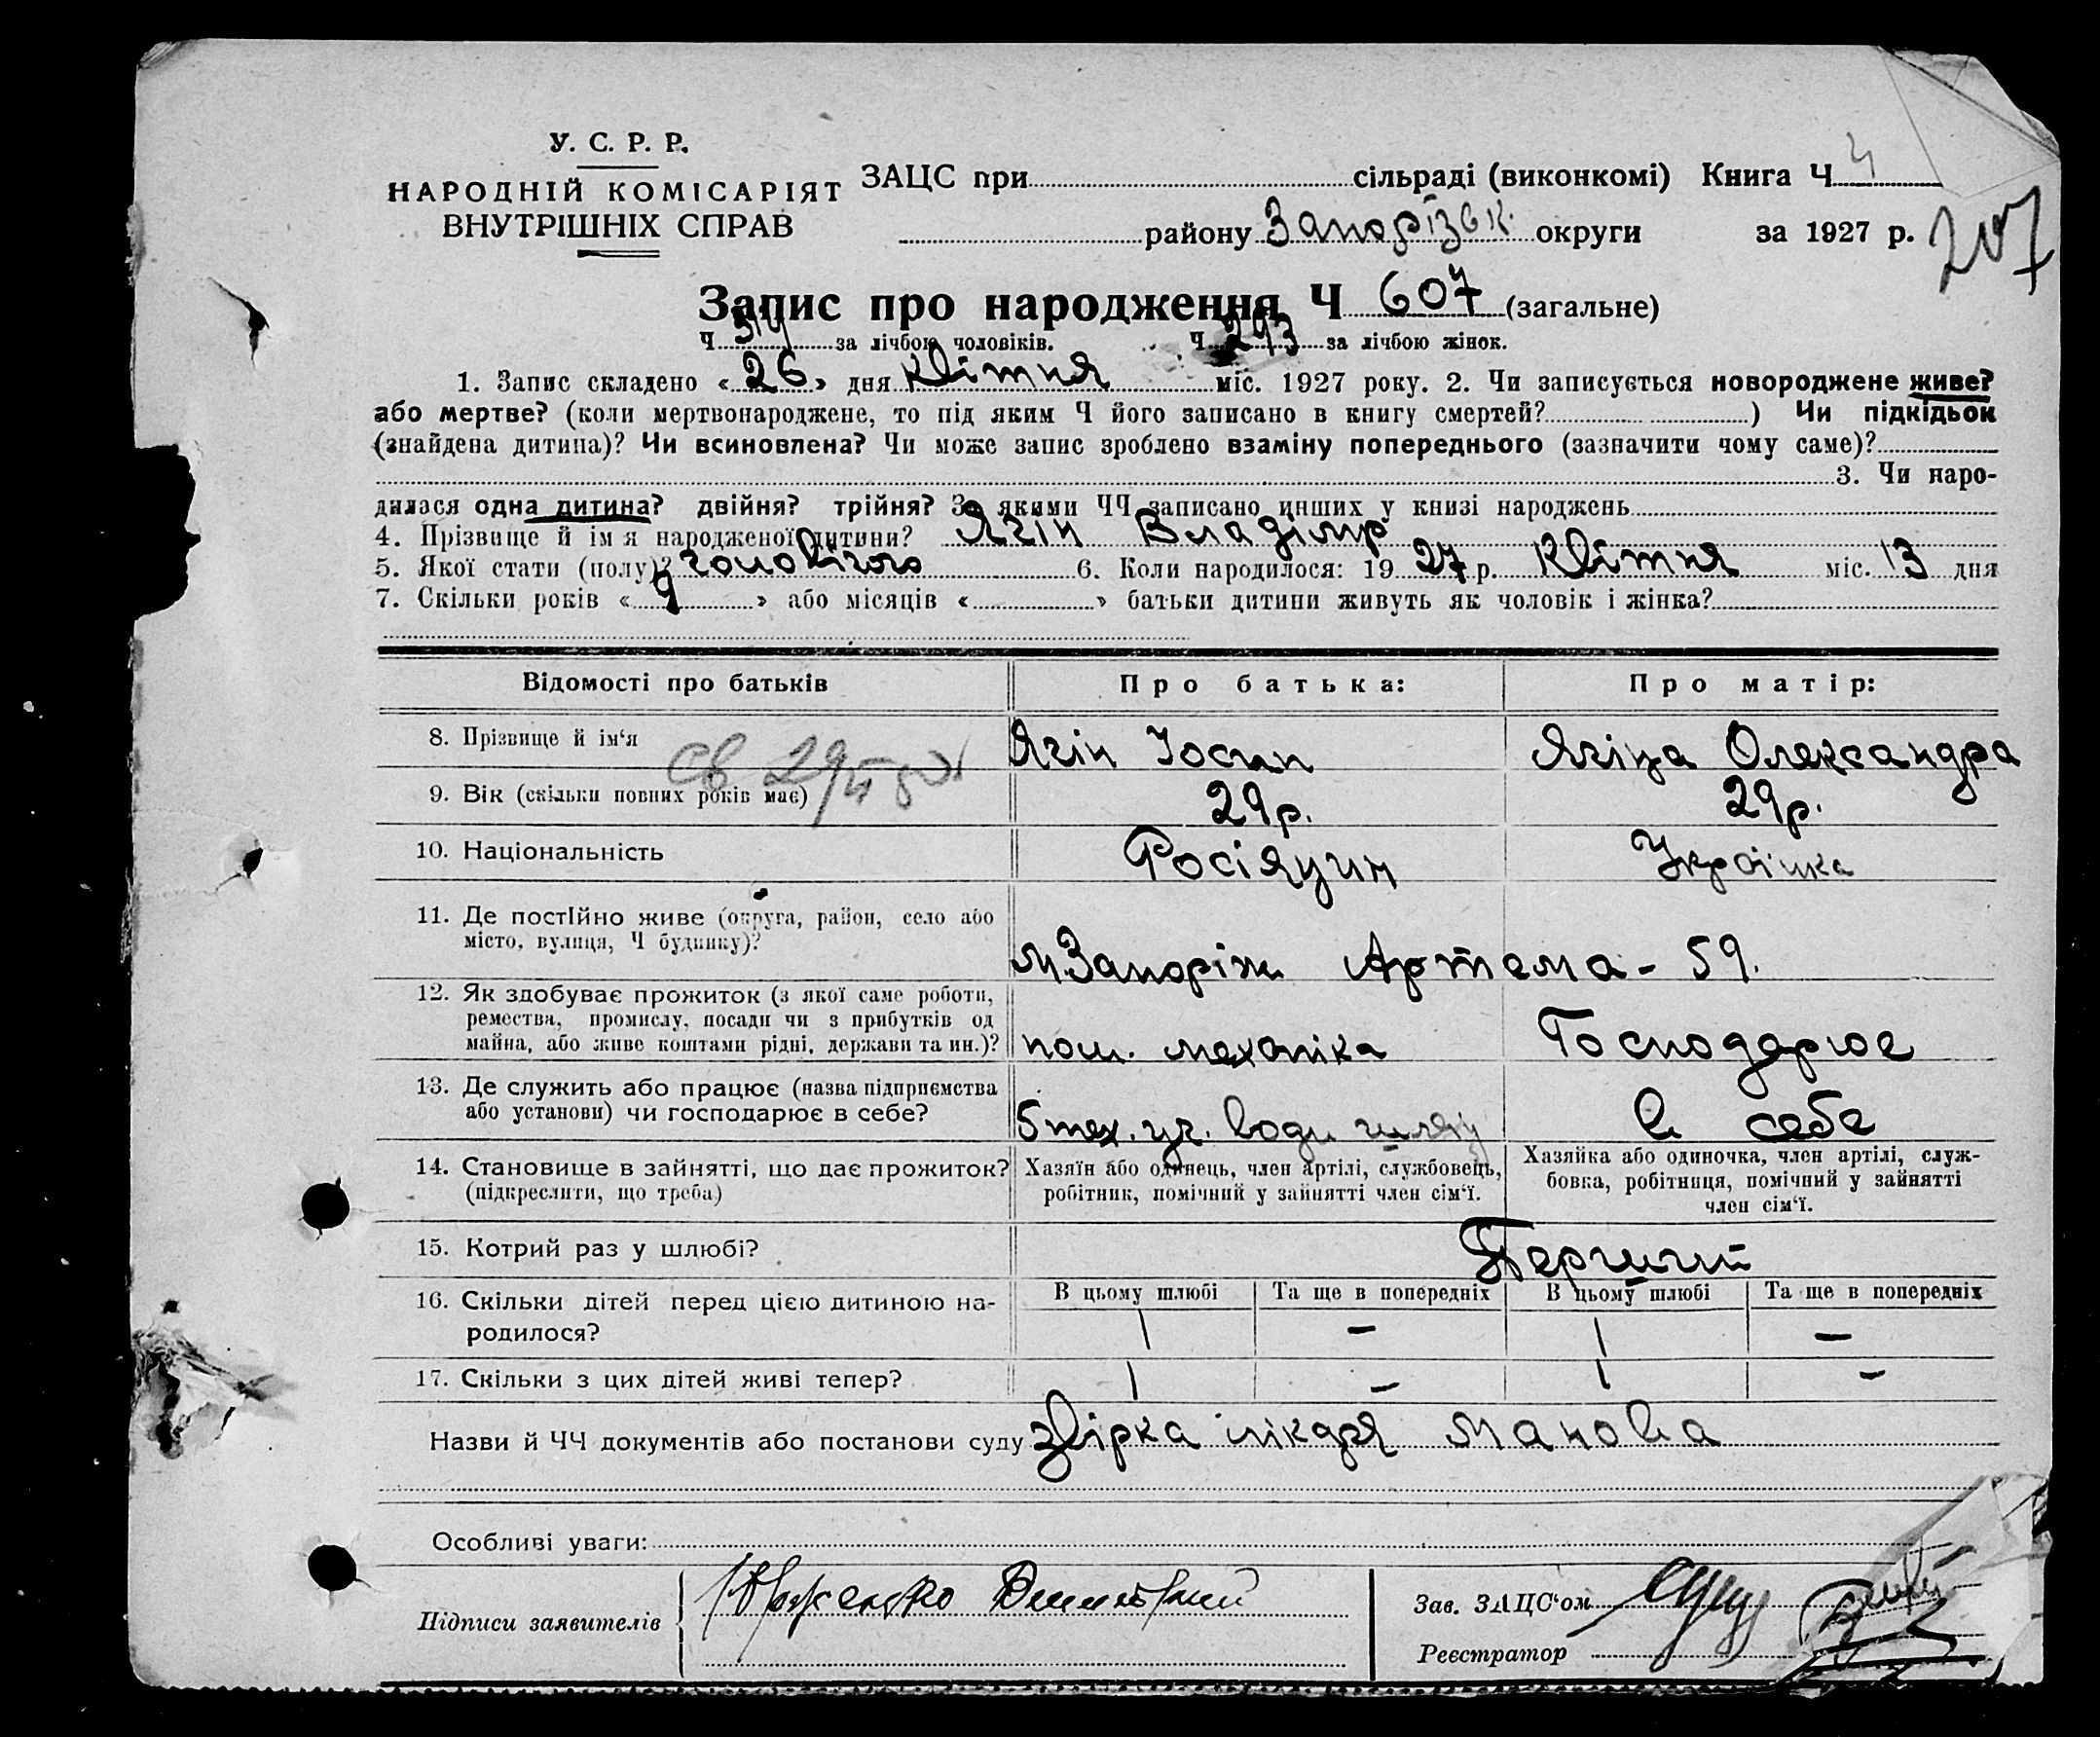 У. С. Р. Р.
НАРОДНІЙ КОМІСАРІЯТ
ВНУТРІШНІХ СПРАВ
ЗАЦС при сільраді (виконкомі) Книга Ч 4
району Запорізьк. округи за 1927 р. 207
Запис про народження Ч 607 (загальне)
Ч 314 за лічбою чоловіків. Ч 293 за лічбою жінок.
1. Запис складено « 26 » дня квітня міс. 1927 року. 2. Чи записується новороджене живе?
або мертве? (коли мертвонароджене, то під яким Ч його записано в книгу смертей? ) Чи підкідьок
(знайдена дитина)? Чи всиновлена? Чи може запис зроблено взаміну попереднього (зазначити чому саме)?
3. Чи наро-
дилася одна дитина? двійня? трійня? За якими ЧЧ записано инших у книзі народжень
4. Прізвище й ім я народженої дитини? Ягін Владімір
5. Якої стати (полу)? чоловічого 6. Коли народилося: 19 27 р. квітня міс. 13 дня
7. Скільки років « 9 » або місяців « » батьки дитини живуть як чоловік і жінка?
Відомості про батьків Про батька: Про матір:
8. Прізвище й ім‘я Ягін Іосип Ягіна Олександра
9. Вік (скільки повних років має) 29р. 29р.
10. Національність Росіянин Українка
11. Де постійно живе (округа, район, село або
місто, вулиця, Ч будинку)?
м.Запоріж Артема - 59.
12. Як здобуває прожиток (з якої саме роботи,
ремества, промислу, посади чи з прибутків од
майна, або живе коштами рідні, держави та ин.)? пом. механіка Господарює
13. Де служить або працює (назва підприємства
або установи) чи господарює в себе? 5 тех. уч. води шляху в себе
14. Становище в зайнятті, що дає прожиток?
(підкреслити, що треба)
Хазяїн або одинець, член артілі, службовець,
робітник, помічний у зайнятті член сім‘ї.
Хазяйка або одиночка, член артілі, служ-
бовка, робітниця, помічний у зайнятті
член сім‘ї.
15. Котрий раз у шлюбі? Перший
16. Скільки дітей перед цією дитиною на-
родилося?
В цьому шлюбі Та ще в попередніх В цьому шлюбі Та ще в попередніх
1 – 1 –
17. Скільки з цих дітей живі тепер? 1 – 1 –
Назви й ЧЧ документів або постанови суду звірка лікаря Манова
Особливі уваги:
Підписи заявителів
Зав. ЗАЦС‘ом
Реєстратор